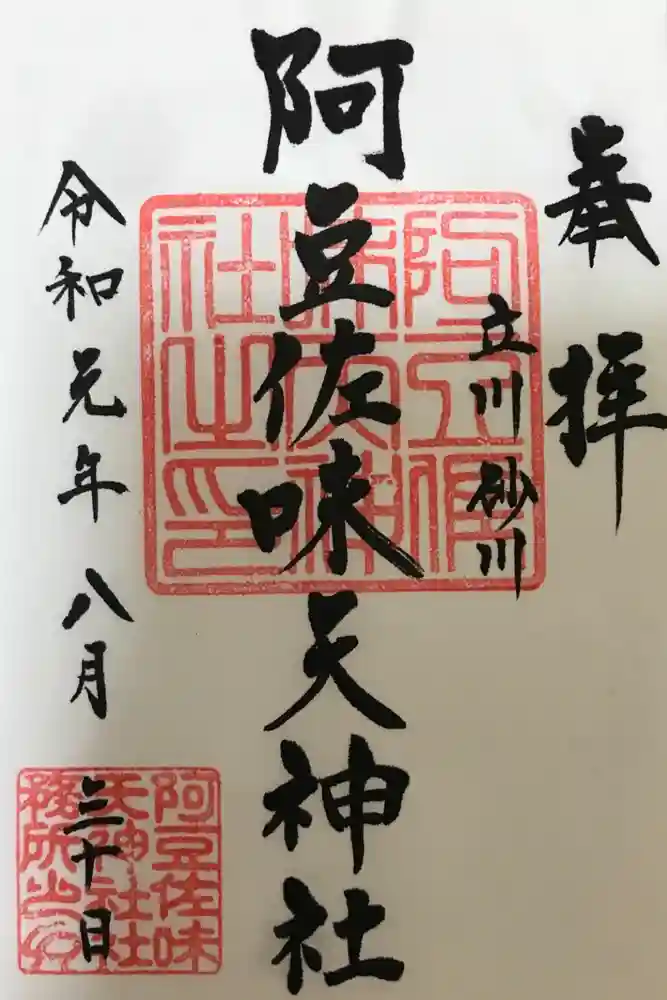 奉拝
立川砂川
阿豆佐味天神社
令和元年八月三十日
阿豆佐味
天神社社
務所之印
阿豆佐
味天神
社之印